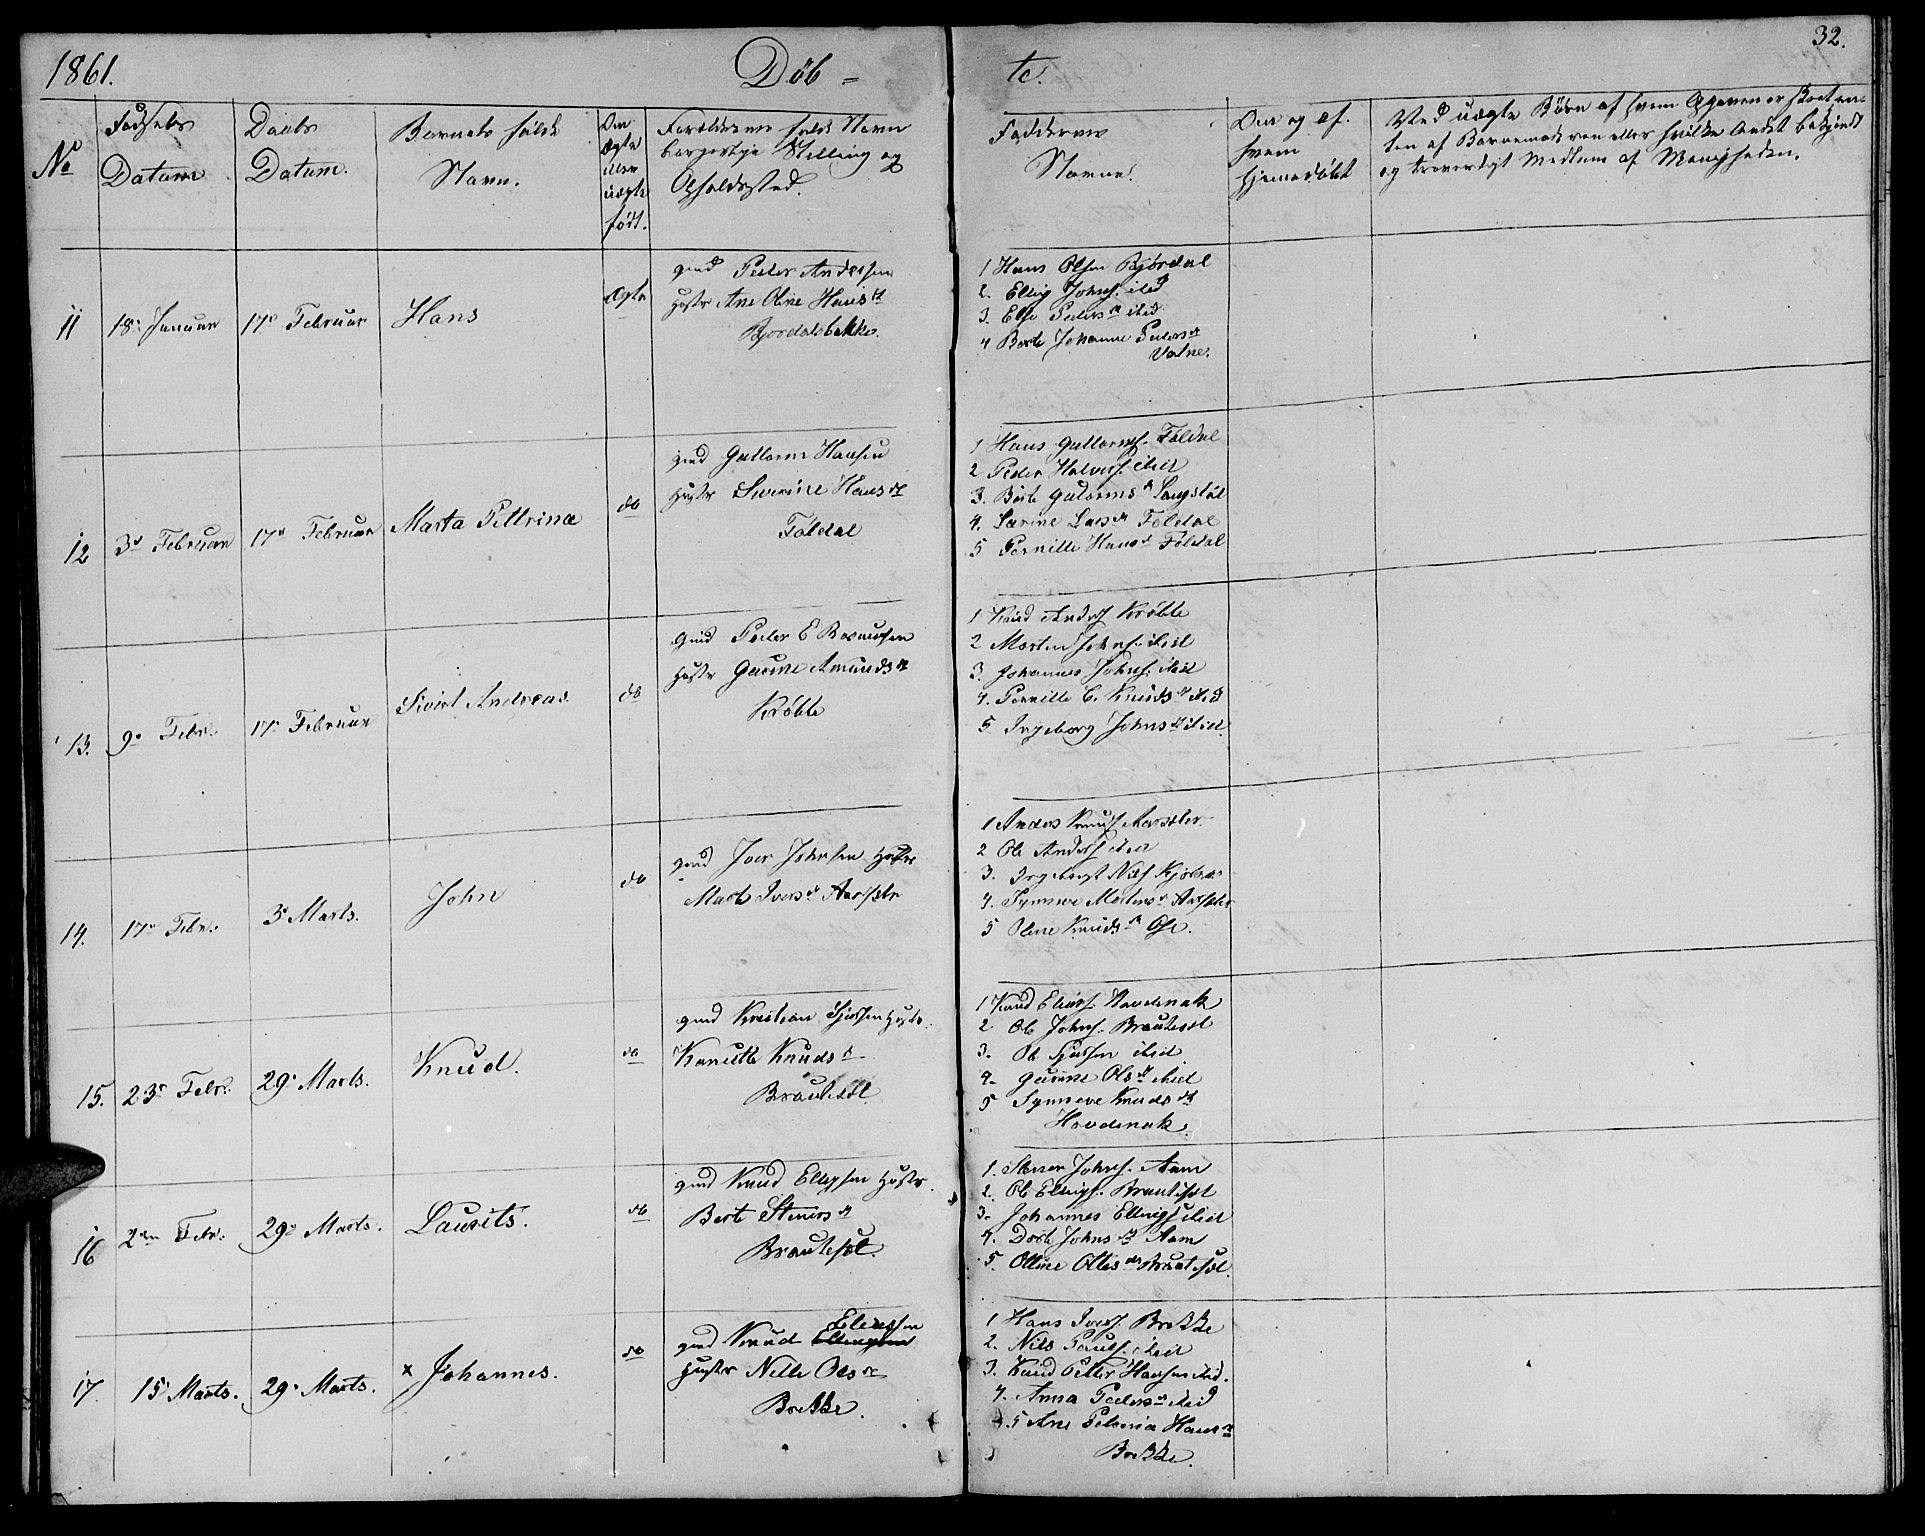 1861.
Døb-
te.
32.
No
Fødsels
Datum
Daabs
Datum.
Barnets fulde
Navn.
Om
Ægte
eller
uægte
født.
Forældrenes fulde Navn
borgerlige Stilling og
Opholdssted.
Faddernes
Navne.
Om og af
hvem
hjemmedøbt
Ved uægte Børn af hvem Opgaven er skeet en-
ten af Barnemoderen eller hvilke andet bekjendt
og troværdigt Medlem af Menigheden.
11
18. Januar
17. Februar
Hans
Ægte
Gmd Peder Andersen
Hustr Ane Oline Hansdt
Bjørdalsbakke.
1 Hans Olsen Bjørdal
2. Elling Johns. ibid
3. Else Pedersdt ibid
4 Berte Johanne Pedersdt
Vatne.
12
3d Februar
17d Februar
Marta Pettrina
do
Gmd Guttorm Hansen
Hustr Severine Hansdt
Føldal
1 Hans Guttorms. Føldal
2 Peder Halvors. ibid
3. Birte Gutormsdt
4. Larsdt Føldal
5 Pernille Hansdt Føldal
13.
9. Febr.
17. Februar
Sivert Andreas
do
Gmd Peder E Rasmussen
Hustr Gurine Amundsdt
Krøble
1 Knud Anders Krøble
2 Morten Johns. ibid
3. Johannes Johns. ibid
4. Pernille C. Knudsdt ibid
5 Ingeborg Johnsdt ibid.
14.
17. Febr.
3. Marts.
John
do
Gmd Iver Johnsen Hustr
Marte Iversdt Aarsæter
1 Anders Knuds Aarsæter
2 Ole Anders ibid
3. Nils
4. Synneve Mortensdt Aarsæter
5 Oline Knudsdt Ose.
15.
23. Febr.
29. Marts.
Knud.
do
Gmd Kristian Sjursen Hustr.
Kanutte Knudsdt
Brautesæt
1 Knud Elias Hovdenak
2 Ole Johns. Brautesæt
3. Ole Sjursen ibid
4. Gurine Olsdt ibid
5 Synneve Knudsdt
Hovdenak.
16
2den Febr.
29. Marts.
Laurits.
do
Gmd Knud Ellingsen Hustr.
Berte Steinersdt
Brautesæt.
1. Stener Johns. Aam
2. Ole Ellings. Brautesæt
3. Johannes Ellings ibid
4. Dorte Johnsdt Aam
5. Olline Ottesdt Brautesæt.
17
15. Marts.
29. Marts.
x Johannes.
do
Eliassen
Gmd Knud Ellingsen
Hustr Nille Olsdt
Brekke.
1 Hans Ivers Brekke
2. Nils Pauls. ibid
3. Knud Petter Hansen ibid.
4. Anna Pedersdt ibid
5 Ane Petrina Hansdt
Brekke.